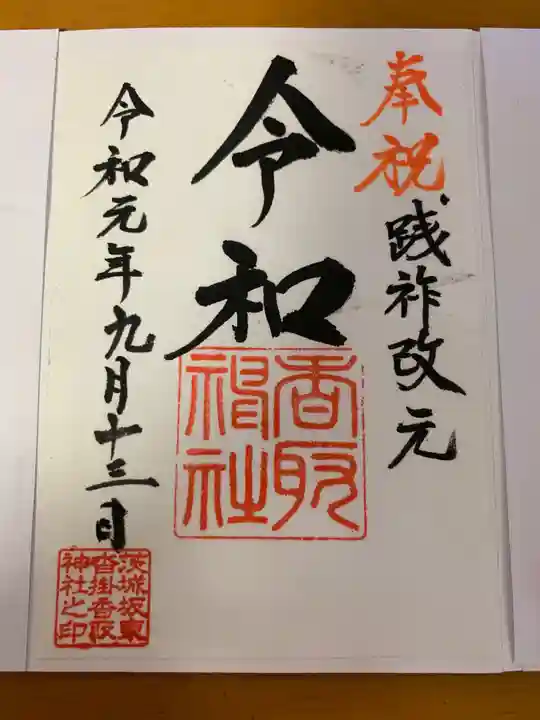 奉祝践祚改元
令和
香取
神社
令和元年九月十三日
茨城坂東
沓掛香取
神社之印